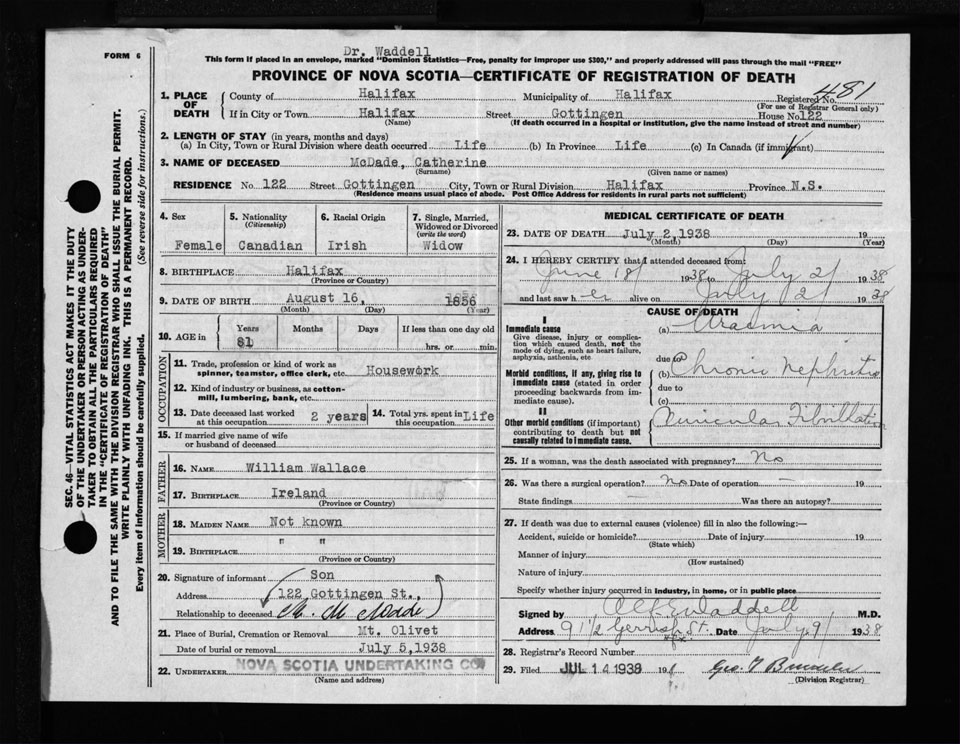 Dr. Waddell
FORM 6
This form if placed in an envelope, marked "Dominion Statistics—Free, penalty for improper use $300," and properly addressed will pass through the mail "FREE"
PROVINCE OF NOVA SCOTIA—CERTIFICATE OF REGISTRATION OF DEATH
481
1. PLACE OF DEATH
County of Halifax Municipality of Halifax Registered No.
(For use of Registrar General only)
If in City or Town Halifax Street Gottingen House No. 122
(Name) (If death occurred in a hospital or institution, give the name instead of street and number)
2. LENGTH OF STAY (in years, months and days)
(a) In City, Town or Rural Division where death occurred Life (b) In Province Life (c) In Canada (if immigrant)
3. NAME OF DECEASED McDade, Catherine
(Surname) (Given name or names)
RESIDENCE No. 122 Street Gottingen City, Town or Rural Division Halifax Province N.S.
(Residence means usual place of abode. Post Office Address for residents in rural parts not sufficient)
4. Sex
Female
5. Nationality
(Citizenship)
Canadian
6. Racial Origin
Irish
7. Single, Married, Widowed or Divorced
(write the word)
Widow
8. BIRTHPLACE Halifax
(Province or Country)
9. DATE OF BIRTH August 16, 1856
(Month) (Day) (Year)
10. AGE in
Years Months Days If less than one day old
81 hrs. or min.
OCCUPATION
11. Trade, profession or kind of work as
spinner, teamster, office clerk, etc. Housework
12. Kind of industry or business, as cotton-
mill, lumbering, bank, etc.
13. Date deceased last worked
at this occupation 2 years
14. Total yrs. spent in
this occupation Life
15. If married give name of wife
or husband of deceased
FATHER
16. NAME William Wallace
17. BIRTHPLACE Ireland
(Province or Country)
MOTHER
18. MAIDEN NAME Not known
19. BIRTHPLACE " "
(Province or Country)
20. Signature of informant Son
Address 122 Gottingen St.,
Relationship to deceased
21. Place of Burial, Cremation or Removal Mt. Olivet
Date of burial or removal July 5, 1938
22. UNDERTAKER NOVA SCOTIA UNDERTAKING CO
(Name and address)
MEDICAL CERTIFICATE OF DEATH
23. DATE OF DEATH July 2, 1938 19
(Month) (Day) (Year)
24. I HEREBY CERTIFY that I attended deceased from:
June 18/ 1938 to July 2/ 1938
and last saw her alive on July 2/ 1938
CAUSE OF DEATH
I
Immediate cause
Give disease, injury or complica-
tion which caused death, not the
mode of dying, such as heart failure,
asphyxia, asthenia, etc
(a) Uraemia
due to
Morbid conditions, if any, giving rise to
immediate cause (stated in order
proceeding backwards from im-
mediate cause).
(b) Chronic Nephritis
due to
(c)
II
Other morbid conditions (if important)
contributing to death but not
causally related to immediate cause.
Auricular Fibrillation
25. If a woman, was the death associated with pregnancy? No
26. Was there a surgical operation? No Date of operation — 19
State findings — Was there an autopsy?
27. If death was due to external causes (violence) fill in also the following:—
Accident, suicide or homicide? Date of injury 19
(State which)
Manner of injury
(How sustained)
Nature of injury
Specify whether injury occurred in industry, in home, or in public place
Signed by Alf E Waddell M.D.
Address 91 1/2 Gerrish St. Date July 9/ 1938
28. Registrar's Record Number
29. Filed JUL 14 1938 193
(Division Registrar)
SEC. 46—VITAL STATISTICS ACT MAKES IT THE DUTY
OF THE UNDERTAKER OR PERSON ACTING AS UNDER-
TAKER TO OBTAIN ALL THE PARTICULARS REQUIRED
IN THE "CERTIFICATE OF REGISTRATION OF DEATH"
AND TO FILE THE SAME WITH THE DIVISION REGISTRAR WHO SHALL ISSUE THE BURIAL PERMIT.
WRITE PLAINLY WITH UNFADING INK. THIS IS A PERMANENT RECORD.
Every item of information should be carefully supplied. (See reverse side for instructions.)